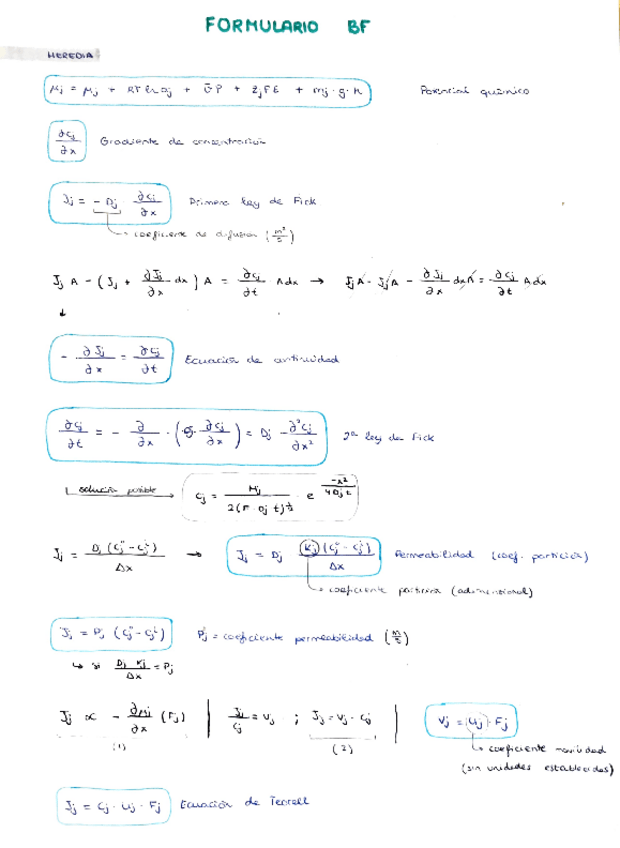 FORMULARIO BF
HEREDIA
μj = μj + RT ln aj + v̄P + zjFE + mj·g·h Potencial químico
∂cj/∂x Gradiente de concentración
Jj = -Dj ∂cj/∂x Primera ley de Fick
coeficiente de difusión (m²/s)
Jj A - (Jj + ∂Jj/∂x dx) A = ∂cj/∂t A dx → JjA - JjA - ∂Jj/∂x dx A = ∂cj/∂t A dx
↓
- ∂Jj/∂x = ∂cj/∂t Ecuación de continuidad
∂cj/∂t = - ∂/∂x · (Dj · ∂cj/∂x) = Dj - ∂²cj/∂x² 2ª ley de Fick
solución posible → cj = Mj/2(π·Dj t)^½ · e^(-x²/4Djt)
Jj = Dj (cj° - cjⁱ)/Δx → Jj = Dj Kj (cj° - cjⁱ)/Δx Permeabilidad (coef. partición)
coeficiente partición (adimensional)
Jj = Pj (cj° - cjⁱ) Pj = coeficiente permeabilidad (m/s)
↳ si Dj Kj/Δx = Pj
Jj ∝ - ∂μj/∂x (Fj) | Jj/cj = vj ; Jj = vj · cj | vj = uj · Fj
(1) (2) coeficiente movilidad
(sin unidades establecidas)
Jj = cj · uj · Fj Ecuación de Teorell